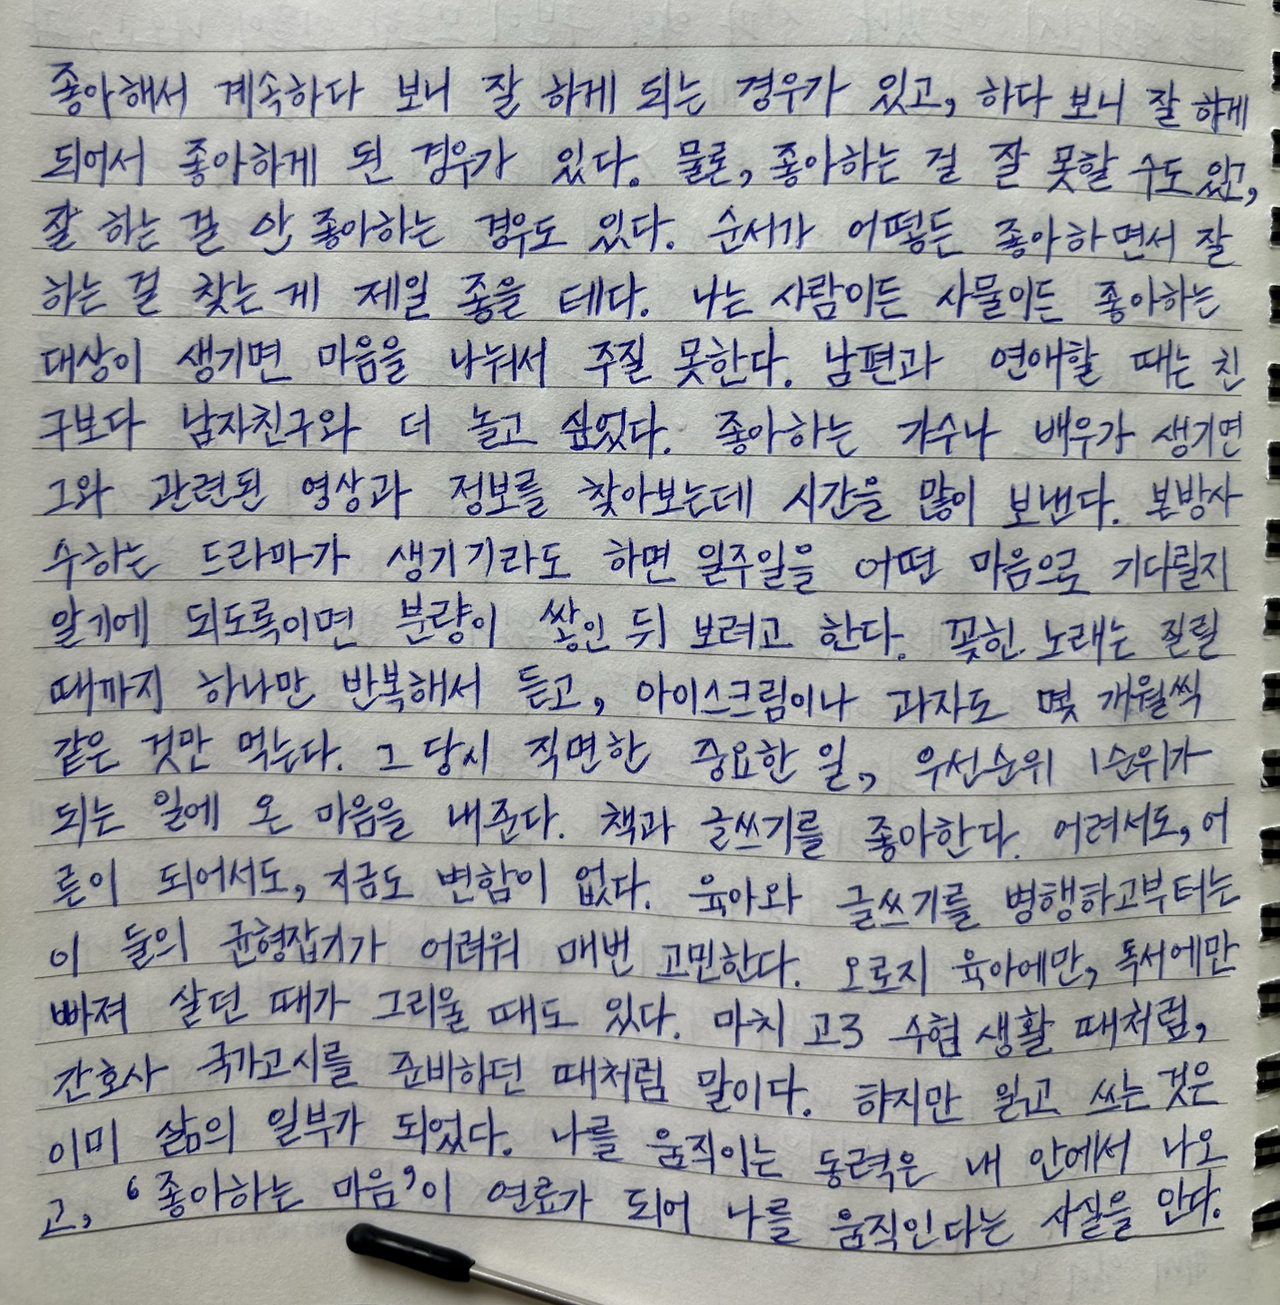 좋아해서 계속하다 보니 잘 하게 되는 경우가 있고, 하다 보니 잘 하게
되어서 좋아하게 된 경우가 있다. 물론, 좋아하는 걸 잘 못할 수도 있고,
잘 하는 걸 안 좋아하는 경우도 있다. 순서가 어떻든 좋아하면서 잘
하는 걸 찾는 게 제일 좋을 테다. 나는 사람이든 사물이든 좋아하는
대상이 생기면 마음을 나눠서 주질 못한다. 남편과 연애할 때는 친
구보다 남자친구와 더 놀고 싶었다. 좋아하는 가수나 배우가 생기면
그와 관련된 영상과 정보를 찾아보는데 시간을 많이 보낸다. 본방사
수하는 드라마가 생기기라도 하면 일주일을 어떤 마음으로 기다릴지
알기에 되도록이면 분량이 쌓인 뒤 보려고 한다. 꽂힌 노래는 질릴
때까지 하나만 반복해서 듣고, 아이스크림이나 과자도 몇 개월씩
같은 것만 먹는다. 그 당시 직면한 중요한 일, 우선순위 1순위가
되는 일에 온 마음을 내준다. 책과 글쓰기를 좋아한다. 어려서도, 어
른이 되어서도, 지금도 변함이 없다. 육아와 글쓰기를 병행하고부터는
이 둘의 균형잡기가 어려워 매번 고민한다. 오로지 육아에만, 독서에만
빠져 살던 때가 그리울 때도 있다. 마치 고3 수험 생활 때처럼,
간호사 국가고시를 준비하던 때처럼 말이다. 하지만 읽고 쓰는 것은
이미 삶의 일부가 되었다. 나를 움직이는 동력은 내 안에서 나오
고, ‘좋아하는 마음’이 연료가 되어 나를 움직인다는 사실을 안다.